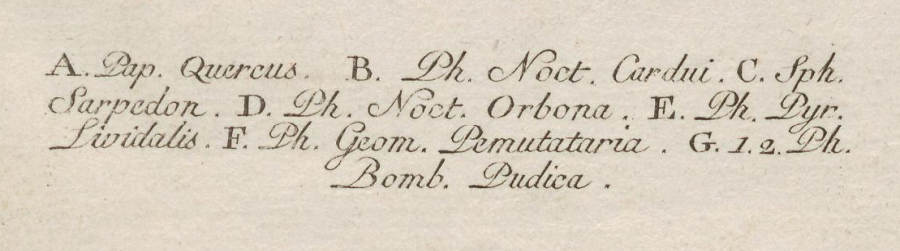 A. Pap. Quercus. B. Ph. Noct. Cardui. C. Sph.
Sarpedon. D. Ph. Noct. Orbona. E. Ph. Pyr.
Lividalis. F. Ph. Geom. Pemutataria. G. 1. 2. Ph.
Bomb. Pudica.